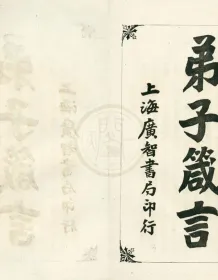 弟子箴言
上海廣智書局印行